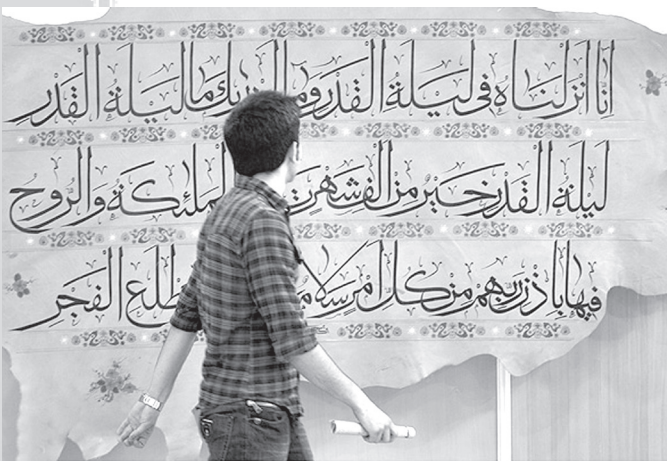 اِنّا اَنْزَلْناهُ فی لَیْلَةِ الْقَدْرِ وَما اَدْریكَ ما لَیْلَةُ الْقَدْرِ
لَیْلَةُ الْقَدْرِ خَیْرٌ مِنْ اَلْفِ شَهْرٍ الْمَلئِکَةُ وَالرُّوحُ
فیها بِاِذْنِ رَبِّهِمْ مِنْ کُلِّ اَمْرٍ سَلامٌ مَطْلَعِ الْفَجْرِ